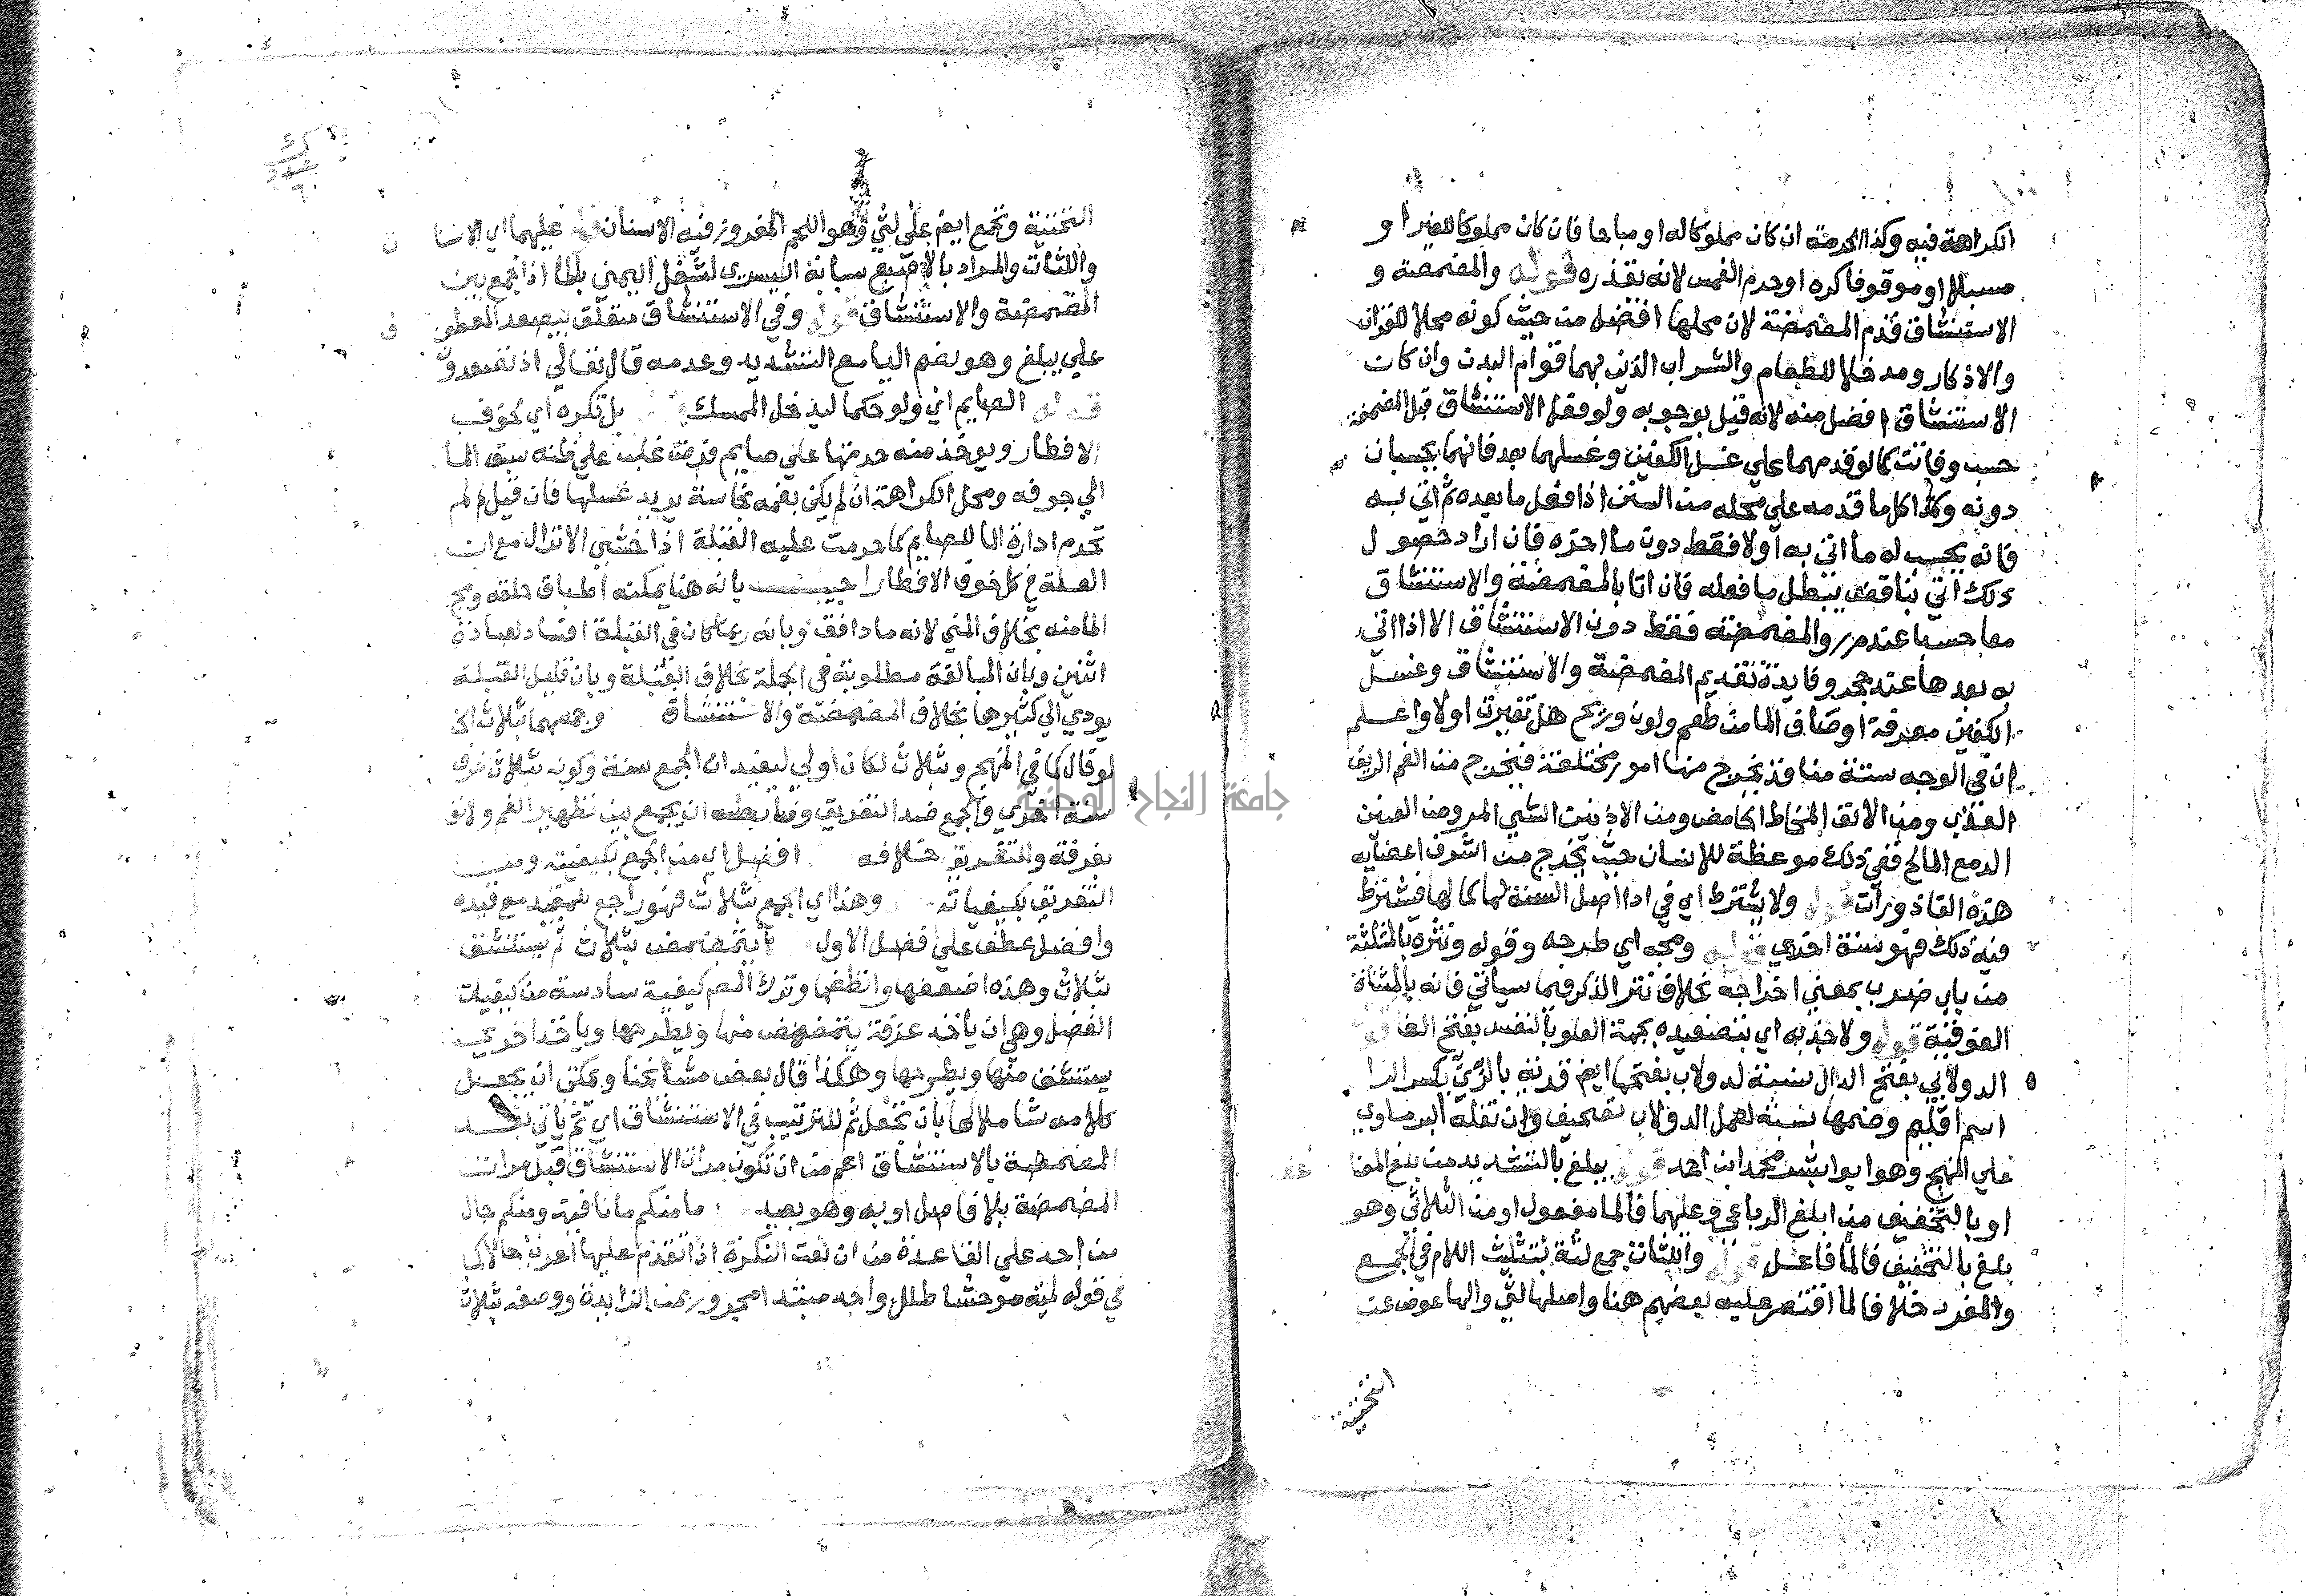 الكراهة فيه وكذا الحرمة ان كان مملوكا له او مباحا فان كان مملوكا للغير او
مسبلا او موقوفا كره او حرم الغمس لانه يقذره قوله والمضمضة و
الاستنشاق قدم المضمضة لان محلها افضل من حيث كونه محلا للقران
والاذكار ومدخلا للطعام والشراب الذين بهما قوام البدن وان كان
الاستنشاق افضل منه لانه قيل بوجوبه ولو فعل الاستنشاق قبل المضمضة
حسب وفاتت كما لو قدمهما على غسل الكفين وغسلهما بعد فانهما يحسبان
دونه وكذا كل ما قدمه على محله من السنن اذا فعل ما بعده ثم اتي به
فانه يحسب له ما اتى به اولا فقط دون ما اخره فان اراد حصول
ذلك اتي بناقض يبطل ما فعله فان اتا بالمضمضة والاستنشاق
معا حسبا عند مر والمضمضة فقط دون الاستنشاق الا اذا اتي
به بعدها عند حجر وفايدة تقديم المضمضة والاستنشاق وغسل
الكفين معرفة اوصاف الما من طعم ولون وريح هل تغيرت اولا واعلم
ان في الوجه ستة منافذ يخرج منها امور مختلفة فيخرج من الفم الريق
العذب ومن الانف المخاط الحامض ومن الاذنين الشي المر ومن العينين
الدمع المالح ففي ذلك موعظة للانسان حيث يخرج من اشرف اعضايه
هذه القاذورات قوله ولا يشترط اي في اداء اصل السنة لهما كما لها فيشترط
فيه ذلك فهو سنة اخري قوله ومجه اي طرحه وقوله ونثره بالمثلثة
من باب ضرب بمعني اخراجه بخلاف نتر الذكر فيما سياتي فانه بالمثناة
الفوقية قوله ولا جذبه اي بتصعيده بجهة العلو بالنفس بفتح الفا قوله
الدولابي بفتح الدال نسبة لدولاب بفتحها ايضا قرية بالري بكسر الرا
اسم اقليم وضمها نسبة لعمل الدولاب تصحيف وان نقله البرماوي
علي المنهج وهو ابو ابشر محمد ابن احمد قوله يبلغ بالتشديد من بلغ المضا عف
او بالتخفيف من ابلغ الرباعي وعليهما فالما مفعول او من الثلاثي وهو
بلغ بالتخفيف فالما فاعل قوله واللثات جمع لثة بتثليث اللام في الجمع
والمفرد خلافا لما اقتصر عليه بعضهم هنا واصلها لثي والها عوض عن
التحتية
التحتية وتجمع ايضا على لثي وهو اللحم المغروز فيه الاسنان قوله عليهما اي الاسنا ن
واللثات والمراد بالاصبع سبابة اليسري لشغل اليمني بالما اذا جمع بين
المضمضة والاستنشاق قوله وفي الاستنشاق متعلق بيصعد المعطو ف
علي يبلغ وهو بضم اليا مع التشديد وعدمه قال تعالي اذ تصعدون
قوله الصايم اي ولو حكما ليدخل الممسك بل تكره اي لخوف
الافطار ويوخذ منه حرمتها علي صايم فرض غلب علي ظنه سبق الما
الي جوفه ومحل الكراهة ان لم يكن بفمه نجاسة يريد غسلها فان قيل لم لم
تحرم ادارة الما للصايم كما حرمت عليه القبلة اذا خشي الانزال مع ان
العلة في كل خوف الافطار اجيب بانه هنا يمكنه اطباق حلقه ومج
الما منه بخلاف المني لانه ما دافق وبانه ربما كان في القبلة افساد لعبادة
اثنين وبان المبالغة مطلوبة في الجملة بخلاف القبلة وبان قليل القبلة
يودي الي كثيرها بخلاف المضمضة والاستنشاق وجمعهما بثلاث الخ
لو قال كما في المنهج وبثلاث لكان اولي ليفيد ان الجمع سنة وكونه بثلاث غرف
سنة اخري والجمع ضد التفريق وضابطه ان يجمع بين تطهير الفم والانف
بغرفة والتفريق خلافه افضل اي من الجمع بكيفيته ومن
التفريق بكيفياته وهذا اي الجمع بثلاث فهو راجع للمقيد مع قيده
وافضل عطف علي افضل الاول يتمضمض بثلاث ثم يستنشق
بثلاث وهذه اضعفها وانظفها وترك المص كيفية سادسة من كيفيات
الفضل وهي ان ياخذ غرفة يتمضمض منها ويطرحها وياخذ اخري
يستنشق منها ويطرحها وهكذا قال بعض مشائخنا ويمكن ان يجعل
كلامه شاملا لها بان تجعل ثم للترتيب في الاستنشاق اي ثم ياتي بعد
المضمضة بالاستنشاق اعم من ان تكون مرات الاستنشاق قبل مرات
المضمضة بلا فاصل او به وهو بعيد ما منكم ما نافية ومنكم حال
من احد علي القاعدة من ان نعت النكرة اذا تقدم عليها اعرب حالا كما
في قوله لمية موحشا طلل واحد مبتدا مجرور بمن الزايدة ووصفه بثلاث
جامعة النجاح الوطنية